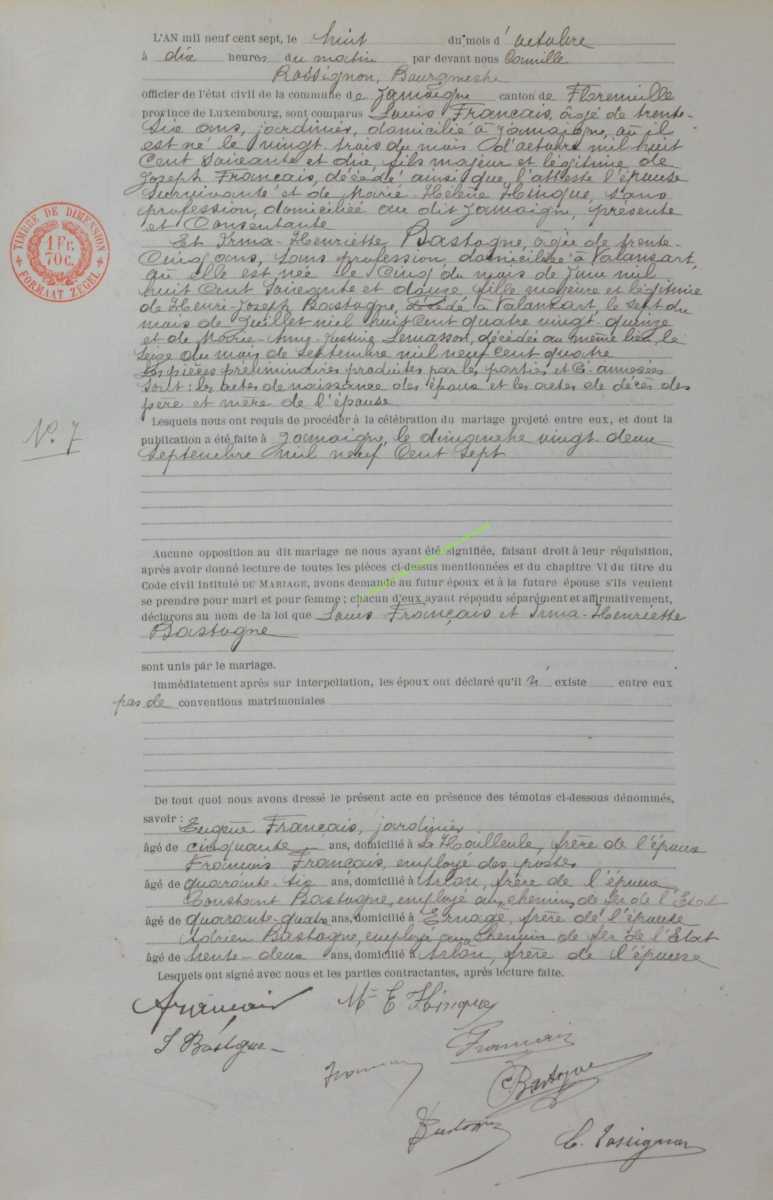 L'AN mil neuf cent sept, le huit du mois d'octobre
à dix heures du matin par devant nous Camille
Rossignon, Bourgmestre
officier de l'état civil de la commune de Jamoigne canton de Florenville
province de Luxembourg, sont comparus Louis Français, âgé de trente-
six ans, jardinier, domicilié à Jamoigne, où il
est né le vingt trois du mois d'octobre mil huit
cent soixante et dix, fils majeur et légitime de
Joseph Français, décédé ainsi que l'atteste l'épouse
survivante et de Marie-Hélène Hinque, sans
profession, domiciliée au dit Jamoigne, présente
et consentante
Et Irma-Henriette Bastogne, âgée de trente-
cinq ans, sans profession, domiciliée à Valansart,
où elle est née le cinq du mois de mil
huit cent soixante et douze fille majeure et légitime
de Henri-Joseph Bastogne, décédé à Valansart, le sept du
mois de Juillet mil huit cent quatre vingt-quinze
et de Marie-Anne-Justine Lemasson, décédée au même lieu, le
seize du mois de septembre mil neuf cent quatre
Les pièces préliminaires produites par les parties et ci-annexées
sont: les actes de naissance des époux et les actes de décès des
père et mère de l'épouse
Lesquels nous ont requis de procéder à la célébration du mariage projeté entre eux, et dont la
publication a été faite à Jamoigne, le dimanche vingt-deux
septembre mil neuf cent sept
N° 7
TIMBRE DE DIMENSION
1 Fr.
70 c.
FORMAAT ZEGEL
Aucune opposition au dit mariage ne nous ayant été signifiée, faisant droit à leur réquisition,
après avoir donné lecture de toutes les pièces ci-dessus mentionnées et du chapitre VI du titre du
Code civil intitulé DU MARIAGE, avons demandé au futur époux et à la future épouse s'ils veulent
se prendre pour mari et pour femme; chacun d'eux ayant répondu séparément et affirmativement,
déclarons au nom de la loi que Louis Français et Irma-Henriette
Bastogne
sont unis par le mariage.
Immédiatement après sur interpellation, les époux ont déclaré qu'il n' existe entre eux
pas de conventions matrimoniales
De tout quoi nous avons dressé le présent acte en présence des témoins ci-dessous dénommés,
savoir: Eugène Français, jardinier
âgé de cinquante ans, domicilié à La frère de l'époux
François Français, employé des postes
âgé de quarante-six ans, domicilié à Arlon, frère de l'époux
Constant Bastogne, employé au chemin de fer de l'Etat
âgé de quarante-quatre ans, domicilié à Ernage, frère de l'épouse
Adrien Bastogne, employé au chemin de fer de l'Etat
âgé de trente-deux ans, domicilié à Arlon, frère de l'épouse
Lesquels ont signé avec nous et les parties contractantes, après lecture faite.
Français M E Hinque
I Bastogne Français
Bastogne
C. Rossignon